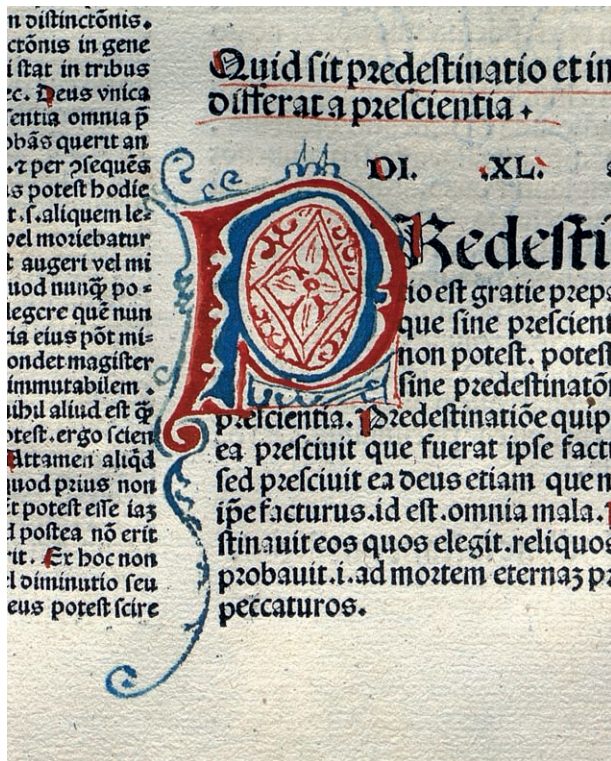 n distinctõnis.
ctõnis in gene
i stat in tribus
ec. Deus vnica
sentia omnia p̄
obãs querit an
.⁊ per ꝯsequẽs
s potest hodie
t.s.aliquem le⸗
vel moriebatur
t augeri vel mi
uod nunqꝫ po⸗
legere quẽ nun
tia eius põt mi⸗
ondet magister
immutabilem.
nihil aliud est qꝫ
otest.ergo scien
Attamen aliqd
quod prius non
et potest esse iaꝫ
d postea nõ erit
rit. Ex hoc non
l diminutio seu
eus potest scire
Quid sit predestinatio et in
differat a prescientia.
DI. XL.
PRedesti
io est gratie prepa
que sine prescient
non potest. potest
sine predestinatõ
prescientia. Predestinatiõe quip
ea presciuit que fuerat ipse factu
sed presciuit ea deus etiam que n
ip̃e facturus.id est.omnia mala.
stinauit eos quos elegit.reliquos
probauit.i.ad mortem eternaꝫ pr
peccaturos.